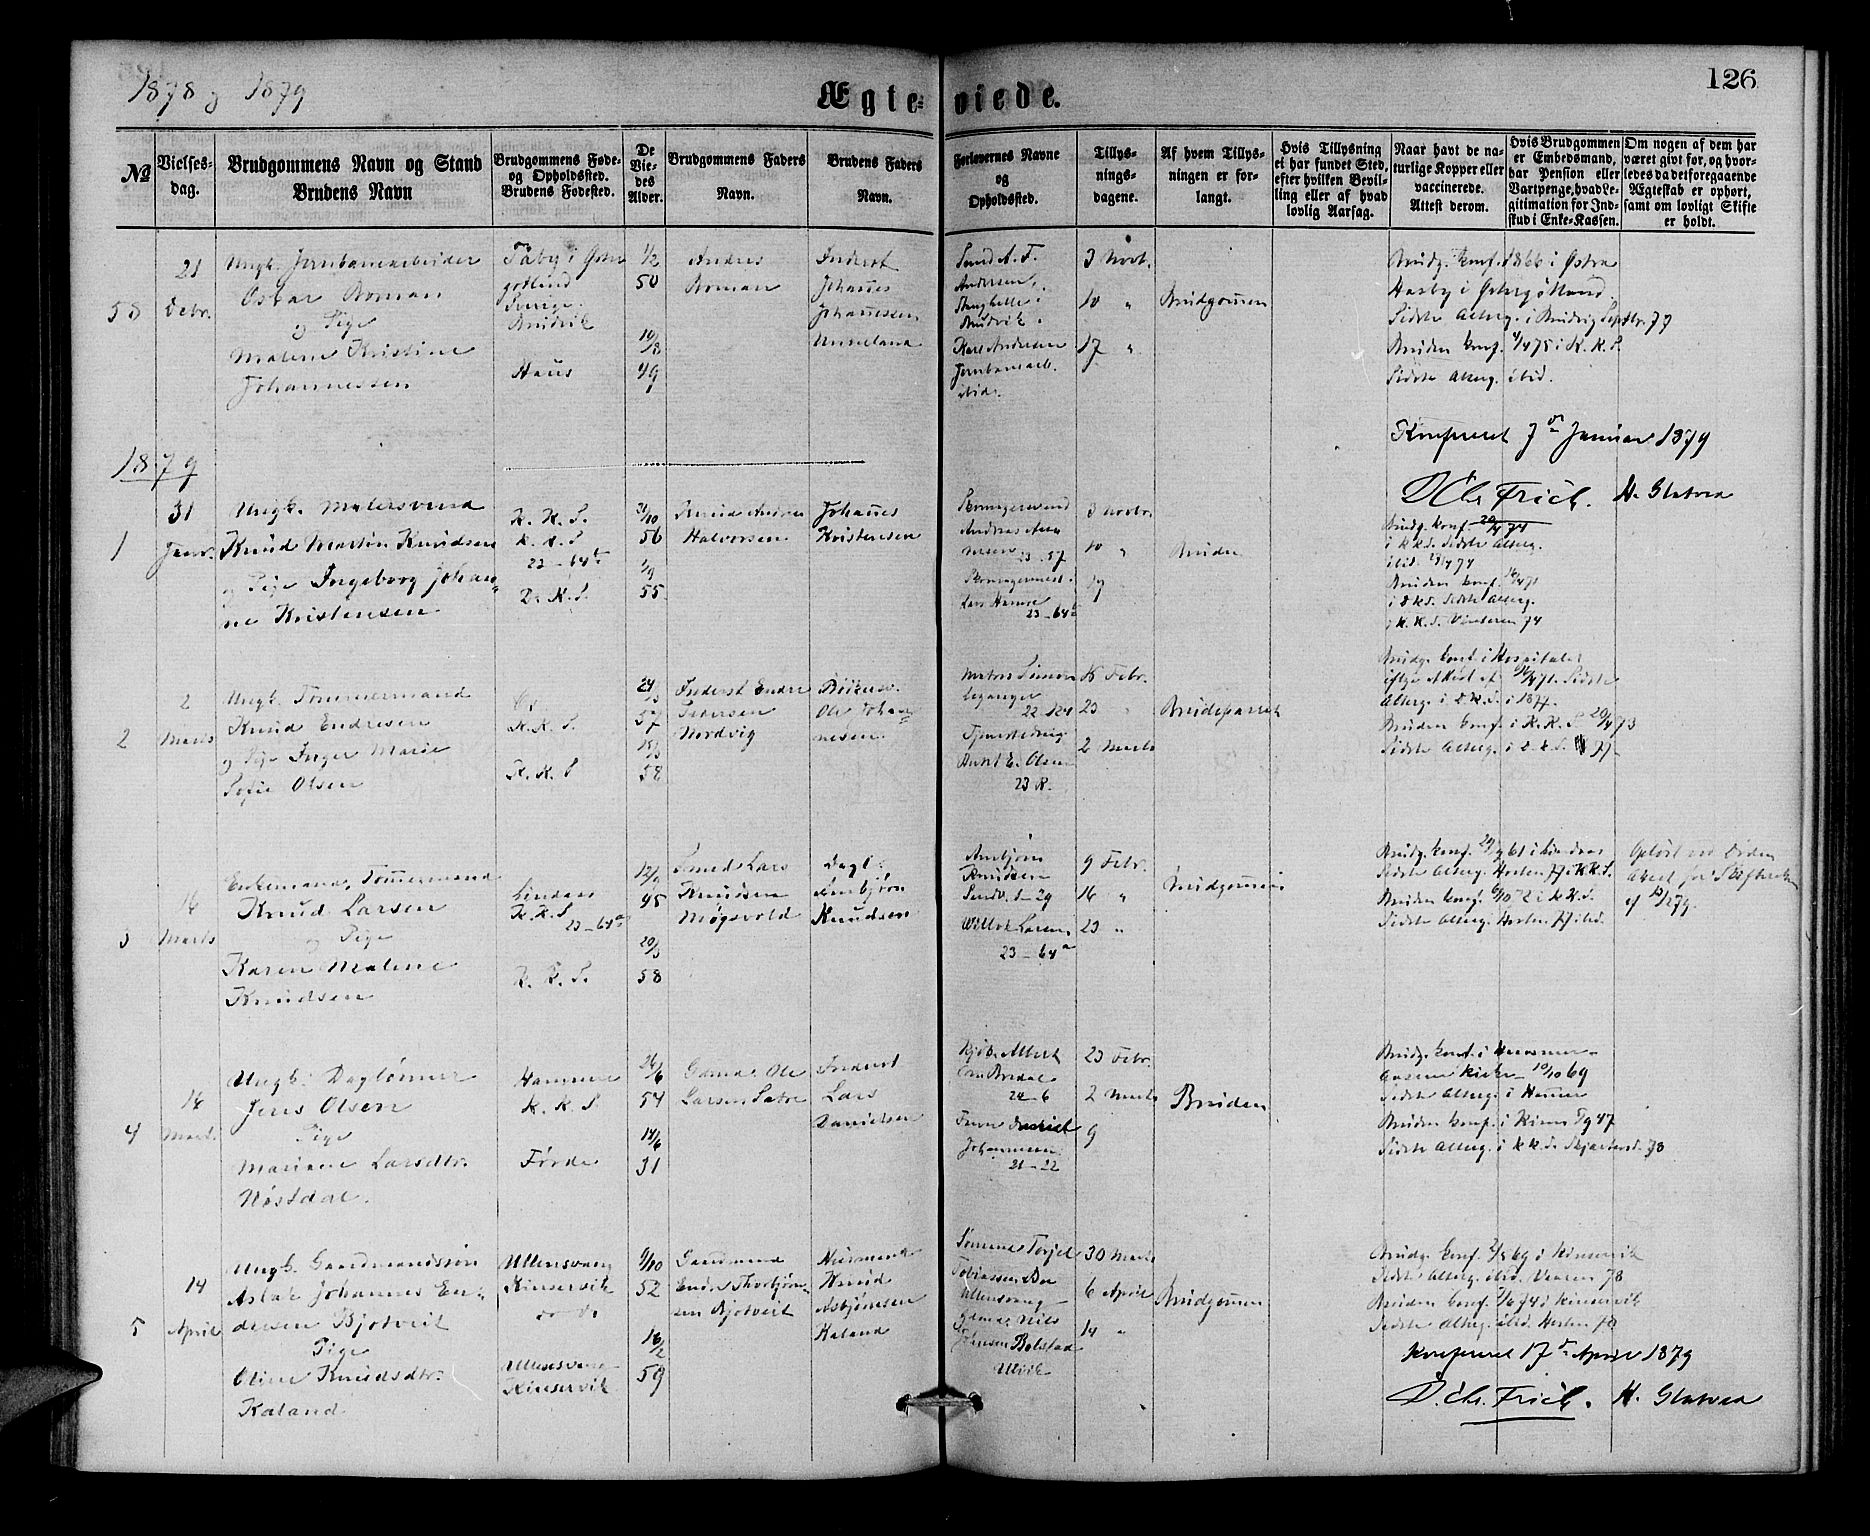 1878 g 1879
Ægteviede.
126
№
Vielses-
dag.
Brudgommens Navn og Stand
Brudens Navn
Brudgommens Føde-
og Opholdssted.
Brudens Fødested.
De
Vie-
des
Alder.
Brudgommens Faders
Navn.
Brudens Faders
Navn.
Forlovernes Navne
og
Opholdssted.
Tillys-
nings-
dagene.
Af hvem Tillys-
ningen er for-
langt.
Hvis Tillysning
ei har fundet Sted,
efter hvilken Bevil-
ling eller af hvad
lovlig Aarsag.
Naar havt de na-
turlige Kopper eller
vaccinerede.
Attest derom.
Hvis Brudgommen
er Embedsmand,
har Pension eller
Vartpenge, hvad Le-
gitimation for Ind-
skud i Enke-Kassen.
Om nogen af dem har
været gift før, og hvor-
ledes da det foregaaende
Ægteskab er ophørt,
samt om lovligt Skifte
er holdt.
58
21
Debr.
Ungk. Jernbanearbeider
Oscar Roman
og Pige
Malene Kristine
Johannessen
Taby i Øster
gotland
Sverige
Brudvik
Haus
1/2
50
10/8
49
Andres
Roman
Inderst
Johannes
Johannessen
Andersen
Brudvik
Karl Andersen
Jernbanearb.
ibid.
3 Novb.
10 "
17 "
Brudgommen
Brudg. konf. 1866 i Østra
Husby i Østergøtland.
Sidste Alterg. i Brudvig Septbr. 77
Bruden konf. 4/4 75 i K. K. S.
Sidste Alterg. ibid.
Konfereret 7de Januar 1879
D Chr Frich. H. Slatved
1879
1
31
Janr.
Ungk. Malersvend
Knud Martin Knudsen
og Pige Ingeborg Johan-
ne Kristensen
K. K. S.
K. K. S
22-64b
D. K. S.
21/10
56
1/9
55
Knud Andreas
Halvorsen
Johannes
Kristensen
Andreas
23-57
Lars Hansen
23-64a
3 Novbr.
10 "
17
Bruden
Brudg. konf. 20/4 74
i KKS. Sidste Alterg.
ibid. 19/4 74
Bruden konf. 16/4 71
i DKS. Sidste Alterg.
i K. K. S. Vinteren 74
2
2
Marts
Ungk. Tømmermand
Knud Endresen
og Pige Inger Marie
Sofie Olsen
K. K. S.
K. K. S
24/3
57
58
Inderst Endre
Petersen
Nordvig
Ole Johan-
nesen
Matros Simon
22-124
E. Olsen
23 R.
16 Febr.
23 "
2 Marts
Brudeparret
Brudg. konf. i Hospitalet
ifølge Attest af 16/4 71. Sidste
Alterg. i D.K.S. i 1877.
Bruden konf. i K. K. S 20/4 73
Sidste Alterg. i D. K. S. 77
3
16
Marts
Enkemand, Tømmermand
Knud Larsen
og Pige
Karen Malene
Knudsen
Lindaas
K. K. S
23-64a
K. K. S.
45
20/3
58
Smed Lars
Knudsen
Møgsvold
Dagl.
Anbjørn
Knudsen
Anbjørn
Knudsen
Sandv. 1-29
Willok Larsen
23-64a
9 Febr.
16 "
23 "
Brudgommen
Brudg. konf. 29/9 61 i Lindaas
Sidste Alterg. Høsten 77 i K.K.S.
Bruden konf. 6/10 72 i K.K.S.
Sidste Alterg. Høsten 77 ibid.
4
16
Marts
Ungk. Daglønner
Jens Olsen
Pige
Mariane Larsdtr.
Nøstdal.
Hammer
K. K. S.
Førde
26/6
54
14/6
31
Gdmd. Ole
Larsen Sætre
Inderst
Lars
Danielsen
Kjøb. Albert
24-6
Johannessen
21-22
23 Febr.
2 Marts
9
Bruden
Brudg. konf. i Hammer-
Kirke 10/10 69
Sidste Alterg. i Hammer
Bruden konf. i Kinn 5/9 47
Sidste Alterg. i K K S. 78
5
14
April
Ungk. Gaardmandssøn
Aslak Johannes En-
dresen Bjotveit
Pige
Oline Knudsdtr.
Kaland
Ullensvang
Kinservik
Ullensvang
Kinservik
9/10
52
16/2
59
Gaardmand
Endre Thorbjørn-
sen Bjotveit
Huusmand
Knud
Asbjørnsen
Kaland
Torjel
Tobiassen
Ullensvang
Gdmd. Nils
Johnsen Bolstad
Ulvik
30 Marts
6 April
14 "
Brudgommen
Brudg. konf. 69 i Kinservik
Sidste Alterg. ibid. Vaaren 78
Bruden konf. 74 i Kinservik
Sidste Alterg. ibid. Høsten 78
Konfereret 17de April 1879
D. Chr. Frich. H. Slatved